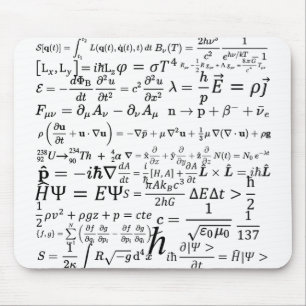 S[q(t)] = ∫_{t₁}^{t₂} L(q(t), q̇(t), t) dt B_ν(T) = 2hν³/c² 1/(e^{hν/kT} − 1)
[L_x, L_y] = iħL_z φ = σT⁴ R_{μν} − 1/2 R g_{μν} + Λ g_{μν} = 8πG/c⁴ T_{μν}
ℰ = −dΦ_B/dt ∂²u/∂t² = c² ∂²u/∂x² λ = h/p E⃗ = ρJ⃗
F_{μν} = ∂_μA_ν − ∂_νA_μ n → p + β⁻ + ν̄_e
ρ(∂u/∂t + u · ∇u) = −∇p̄ + μ∇²u + 1/3 μ∇(∇ · u) + ρg
²³⁸₉₂U → ²³⁴₉₀Th + ⁴₂α ∇ = x̂ ∂/∂x + ŷ ∂/∂y + ẑ ∂/∂z N(t) = N₀e^{−λt}
p̂ = −iħ∇ dA/dt = i/ħ [H, A] + ∂A/∂t L̂ × L̂ = iħL̂
ĤΨ = EΨ S = πAkc³/2hG ΔEΔt >
1/2 ρv² + ρgz + p = cte c = 1/√(ε₀μ₀) 1/137
{f, g} = Σ_{i=1}^{N} [∂f/∂q_i ∂g/∂p_i − ∂f/∂p_i ∂g/∂q_i] ħ
S = 1/2κ ∫ R√−g d⁴x iħ ∂|Ψ>/∂t = Ĥ|Ψ>